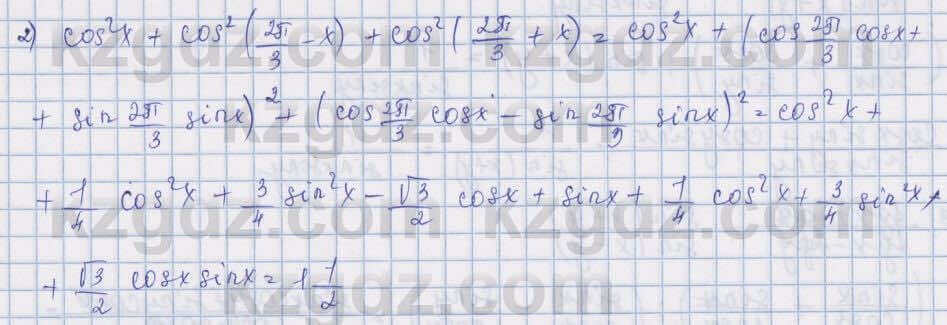 2) cos²x + cos²(2π/3 - x) + cos²(2π/3 + x) = cos²x + (cos 2π/3 cosx +
+ sin 2π/3 sinx)² + (cos 2π/3 cosx - sin 2π/3 sinx)² = cos²x +
+ 1/4 cos²x + 3/4 sin²x - √3/2 cosx + sinx + 1/4 cos²x + 3/4 sin²x +
+ √3/2 cosx sinx = 1 1/2
kzgdz.com
kzgdz.com
kzgdz.com
kzgdz.com